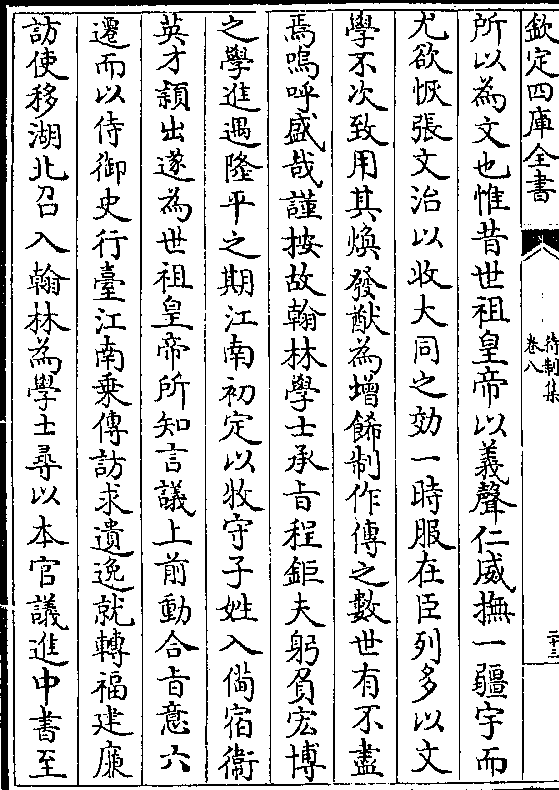 欽定四庫全書
待制集
卷八
二十三
所以為文也惟昔世祖皇帝以義聲仁威撫一疆宇而
尤欲恢張文治以收大同之効一時服在臣列多以文
學不次致用其煥發猷為增餙制作傳之數世有不盡
焉嗚呼盛哉謹按故翰林學士承旨程鉅夫躬負宏博
之學進遇隆平之期江南初定以牧守子姓入備宿衞
英才穎出遂為世祖皇帝所知言議上前動合旨意六
遷而以侍御史行臺江南乗傳訪求遺逸就轉福建廉
訪使移湖北召入翰林為學士尋以本官議進中書至